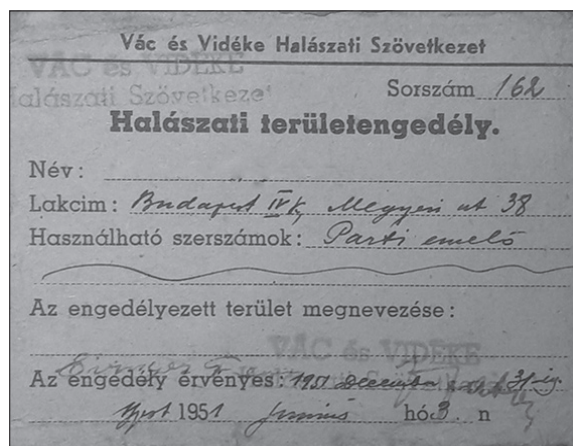 Vác és Vidéke Halászati Szövetkezet
VÁC és VIDÉKE
Halászati Szövetkezet
Sorszám 162
Halászati területengedély.
Név:
Lakcim: Budapest IV k. Megyeri ut 38
Használható szerszámok: Parti emelő
Az engedélyezett terület megnevezése:
VÁC és VIDÉKE
Az engedély érvényes: 1951 december 31-ig.
1951 junius hó 3. n